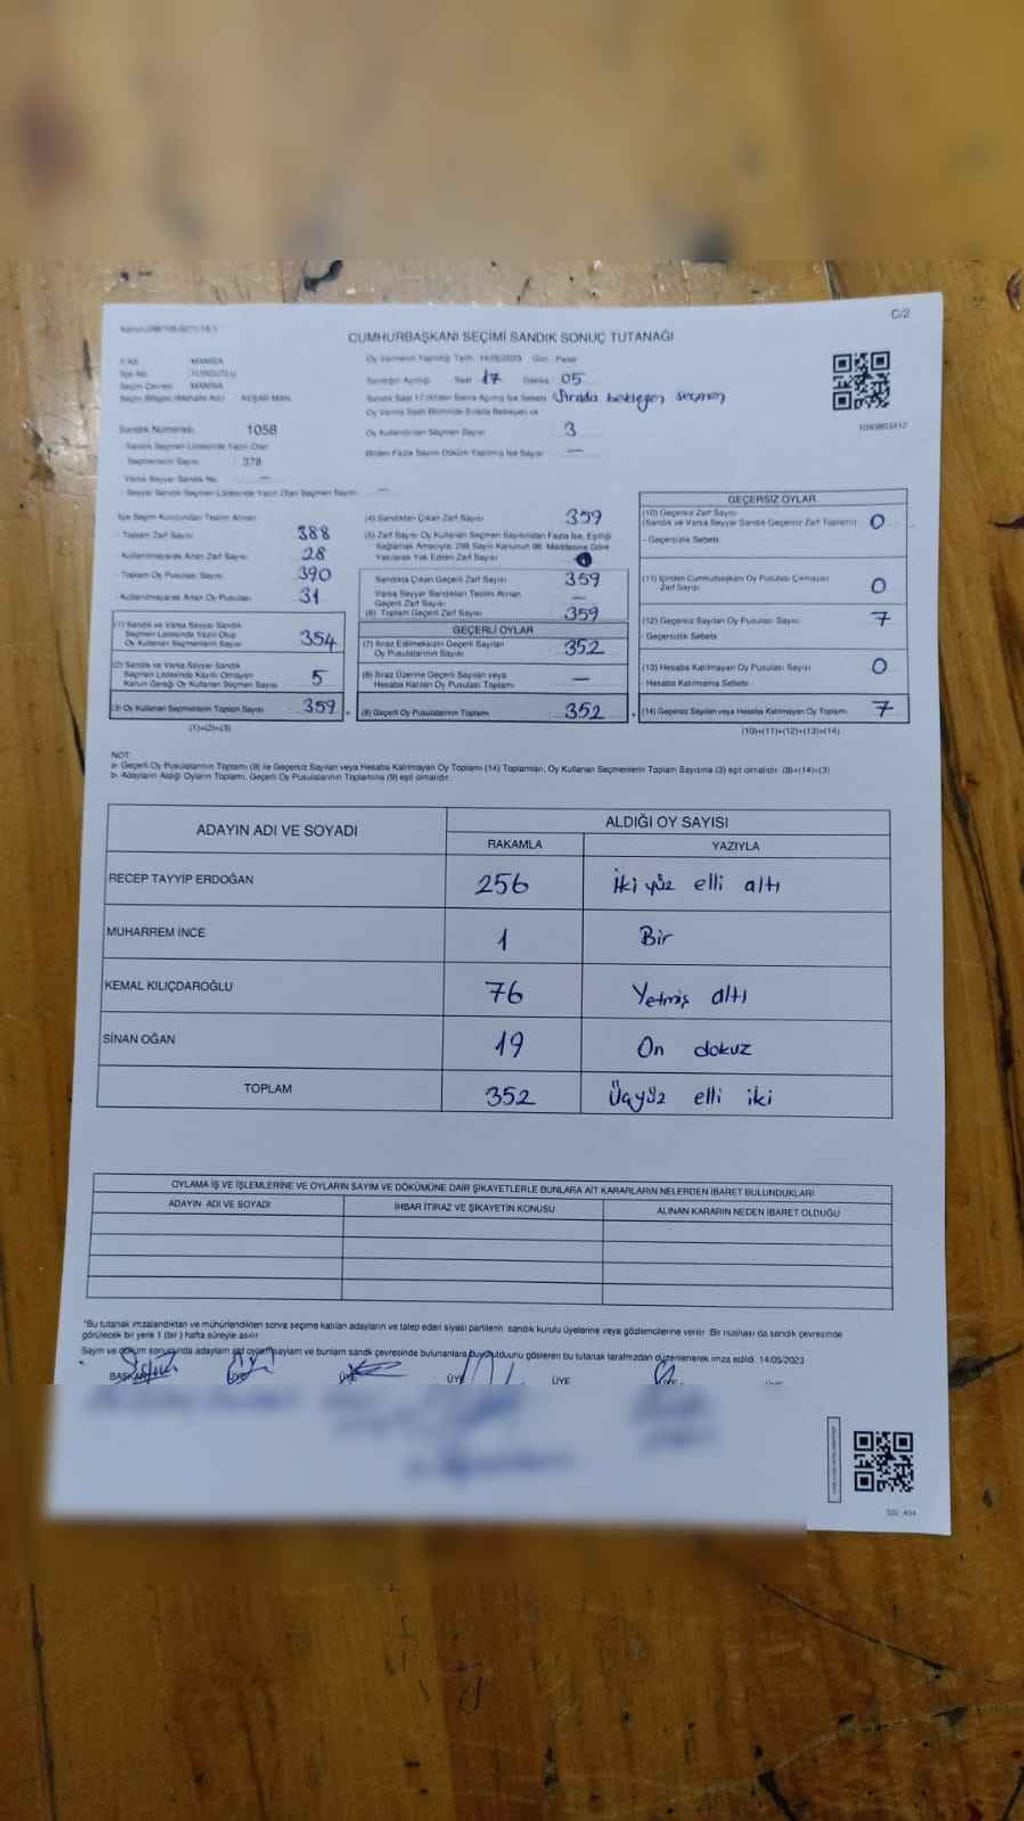 C/2
CUMHURBAŞKANI SEÇİMİ SANDIK SONUÇ TUTANAĞI
İl Adı MANİSA
Oy Vermenin Yapıldığı Tarih 14/05/2023 Gün Pazar
İlçe Adı TURGUTLU
Seçim Çevresi MANİSA
Sandığın Açılışı Saat 17 Dakika 05
Sırada bekleyen seçmen
Sandık Numarası 1058
Oy Kullandırılan Seçmen Sayısı 3
Sandık Seçmen Listesinde Yazılı Olan
Seçmenlerin Sayısı 378
Birden Fazla Sayım Döküm Yapılmış İse Sayısı —
Varsa Seyyar Sandık No —
Seyyar Sandık Seçmen Listesinde Yazılı Olan Seçmen Sayısı —
İlçe Seçim Kurulundan Teslim Alınan
Toplam Zarf Sayısı 388
Kullanılmayarak Artan Zarf Sayısı 28
Toplam Oy Pusulası Sayısı 390
Kullanılmayarak Artan Oy Pusulası 31
(1) Sandık ve Varsa Seyyar Sandık
Seçmen Listesinde Yazılı Olup
Oy Kullanan Seçmenlerin Sayısı 354
(2) Sandık ve Varsa Seyyar Sandık
Seçmen Listesinde Kayıtlı Olmayan
Kanun Gereği Oy Kullanan Seçmen Sayısı 5
(3) Oy Kullanan Seçmenlerin Toplam Sayısı 359
(1)+(2)=(3)
(4) Sandıktan Çıkan Zarf Sayısı 359
(5) Zarf Sayısı Oy Kullanan Seçmen Sayısından Fazla İse, Eşitliği
Sağlamak Amacıyla, 298 Sayılı Kanunun 98. Maddesine Göre
Yakılarak Yok Edilen Zarf Sayısı
Sandıkta Çıkan Geçerli Zarf Sayısı 359
Varsa Seyyar Sandıktan Teslim Alınan
Geçerli Zarf Sayısı —
(6) Toplam Geçerli Zarf Sayısı 359
GEÇERLİ OYLAR
(7) İtiraz Edilmeksizin Geçerli Sayılan
Oy Pusulalarının Sayısı 352
(8) İtiraz Üzerine Geçerli Sayılan veya
Hesaba Katılan Oy Pusulası Toplamı —
(9) Geçerli Oy Pusulalarının Toplamı 352
GEÇERSİZ OYLAR
(10) Geçersiz Zarf Sayısı
(Sandık ve Varsa Seyyar Sandık Geçersiz Zarf Toplamı) 0
- Geçersizlik Sebebi
(11) İçinden Cumhurbaşkanı Oy Pusulası Çıkmayan
Zarf Sayısı 0
(12) Geçersiz Sayılan Oy Pusulası Sayısı 7
- Geçersizlik Sebebi
(13) Hesaba Katılmayan Oy Pusulası Sayısı 0
- Hesaba Katılmama Sebebi
(14) Geçersiz Sayılan veya Hesaba Katılmayan Oy Toplamı 7
(10)+(11)+(12)+(13)=(14)
NOT:
a- Geçerli Oy Pusulalarının Toplamı (9) ile Geçersiz Sayılan veya Hesaba Katılmayan Oy Toplamı (14) Toplamları, Oy Kullanan Seçmenlerin Toplam Sayısına (3) eşit olmalıdır. (9)+(14)=(3)
b- Adayların Aldığı Oyların Toplamı, Geçerli Oy Pusulalarının Toplamına (9) eşit olmalıdır.
ADAYIN ADI VE SOYADI
ALDIĞI OY SAYISI
RAKAMLA YAZIYLA
RECEP TAYYİP ERDOĞAN 256 İki yüz elli altı
MUHARREM İNCE 1 Bir
KEMAL KILIÇDAROĞLU 76 Yetmiş altı
SİNAN OĞAN 19 On dokuz
TOPLAM 352 Üçyüz elli iki
OYLAMA İŞ VE İŞLEMLERİNE VE OYLARIN SAYIM VE DÖKÜMÜNE DAİR ŞİKAYETLERLE BUNLARA AİT KARARLARIN NELERDEN İBARET BULUNDUKLARI
ADAYIN ADI VE SOYADI İHBAR İTİRAZ VE ŞİKAYETİN KONUSU ALINAN KARARIN NEDEN İBARET OLDUĞU
*Bu tutanak imzalandıktan ve mühürlendikten sonra seçime katılan adayların ve talep eden siyasi partilerin sandık kurulu üyelerine veya gözlemcilerine verilir. Bir nüshası da sandık çevresinde
görülecek bir yere 1 (bir) hafta süreyle asılır
Sayım ve döküm sonucunda adayların bu tutanak tarafımızdan düzenlenerek imza edildi. 14/05/2023
BAŞKAN ÜYE ÜYE ÜYE ÜYE